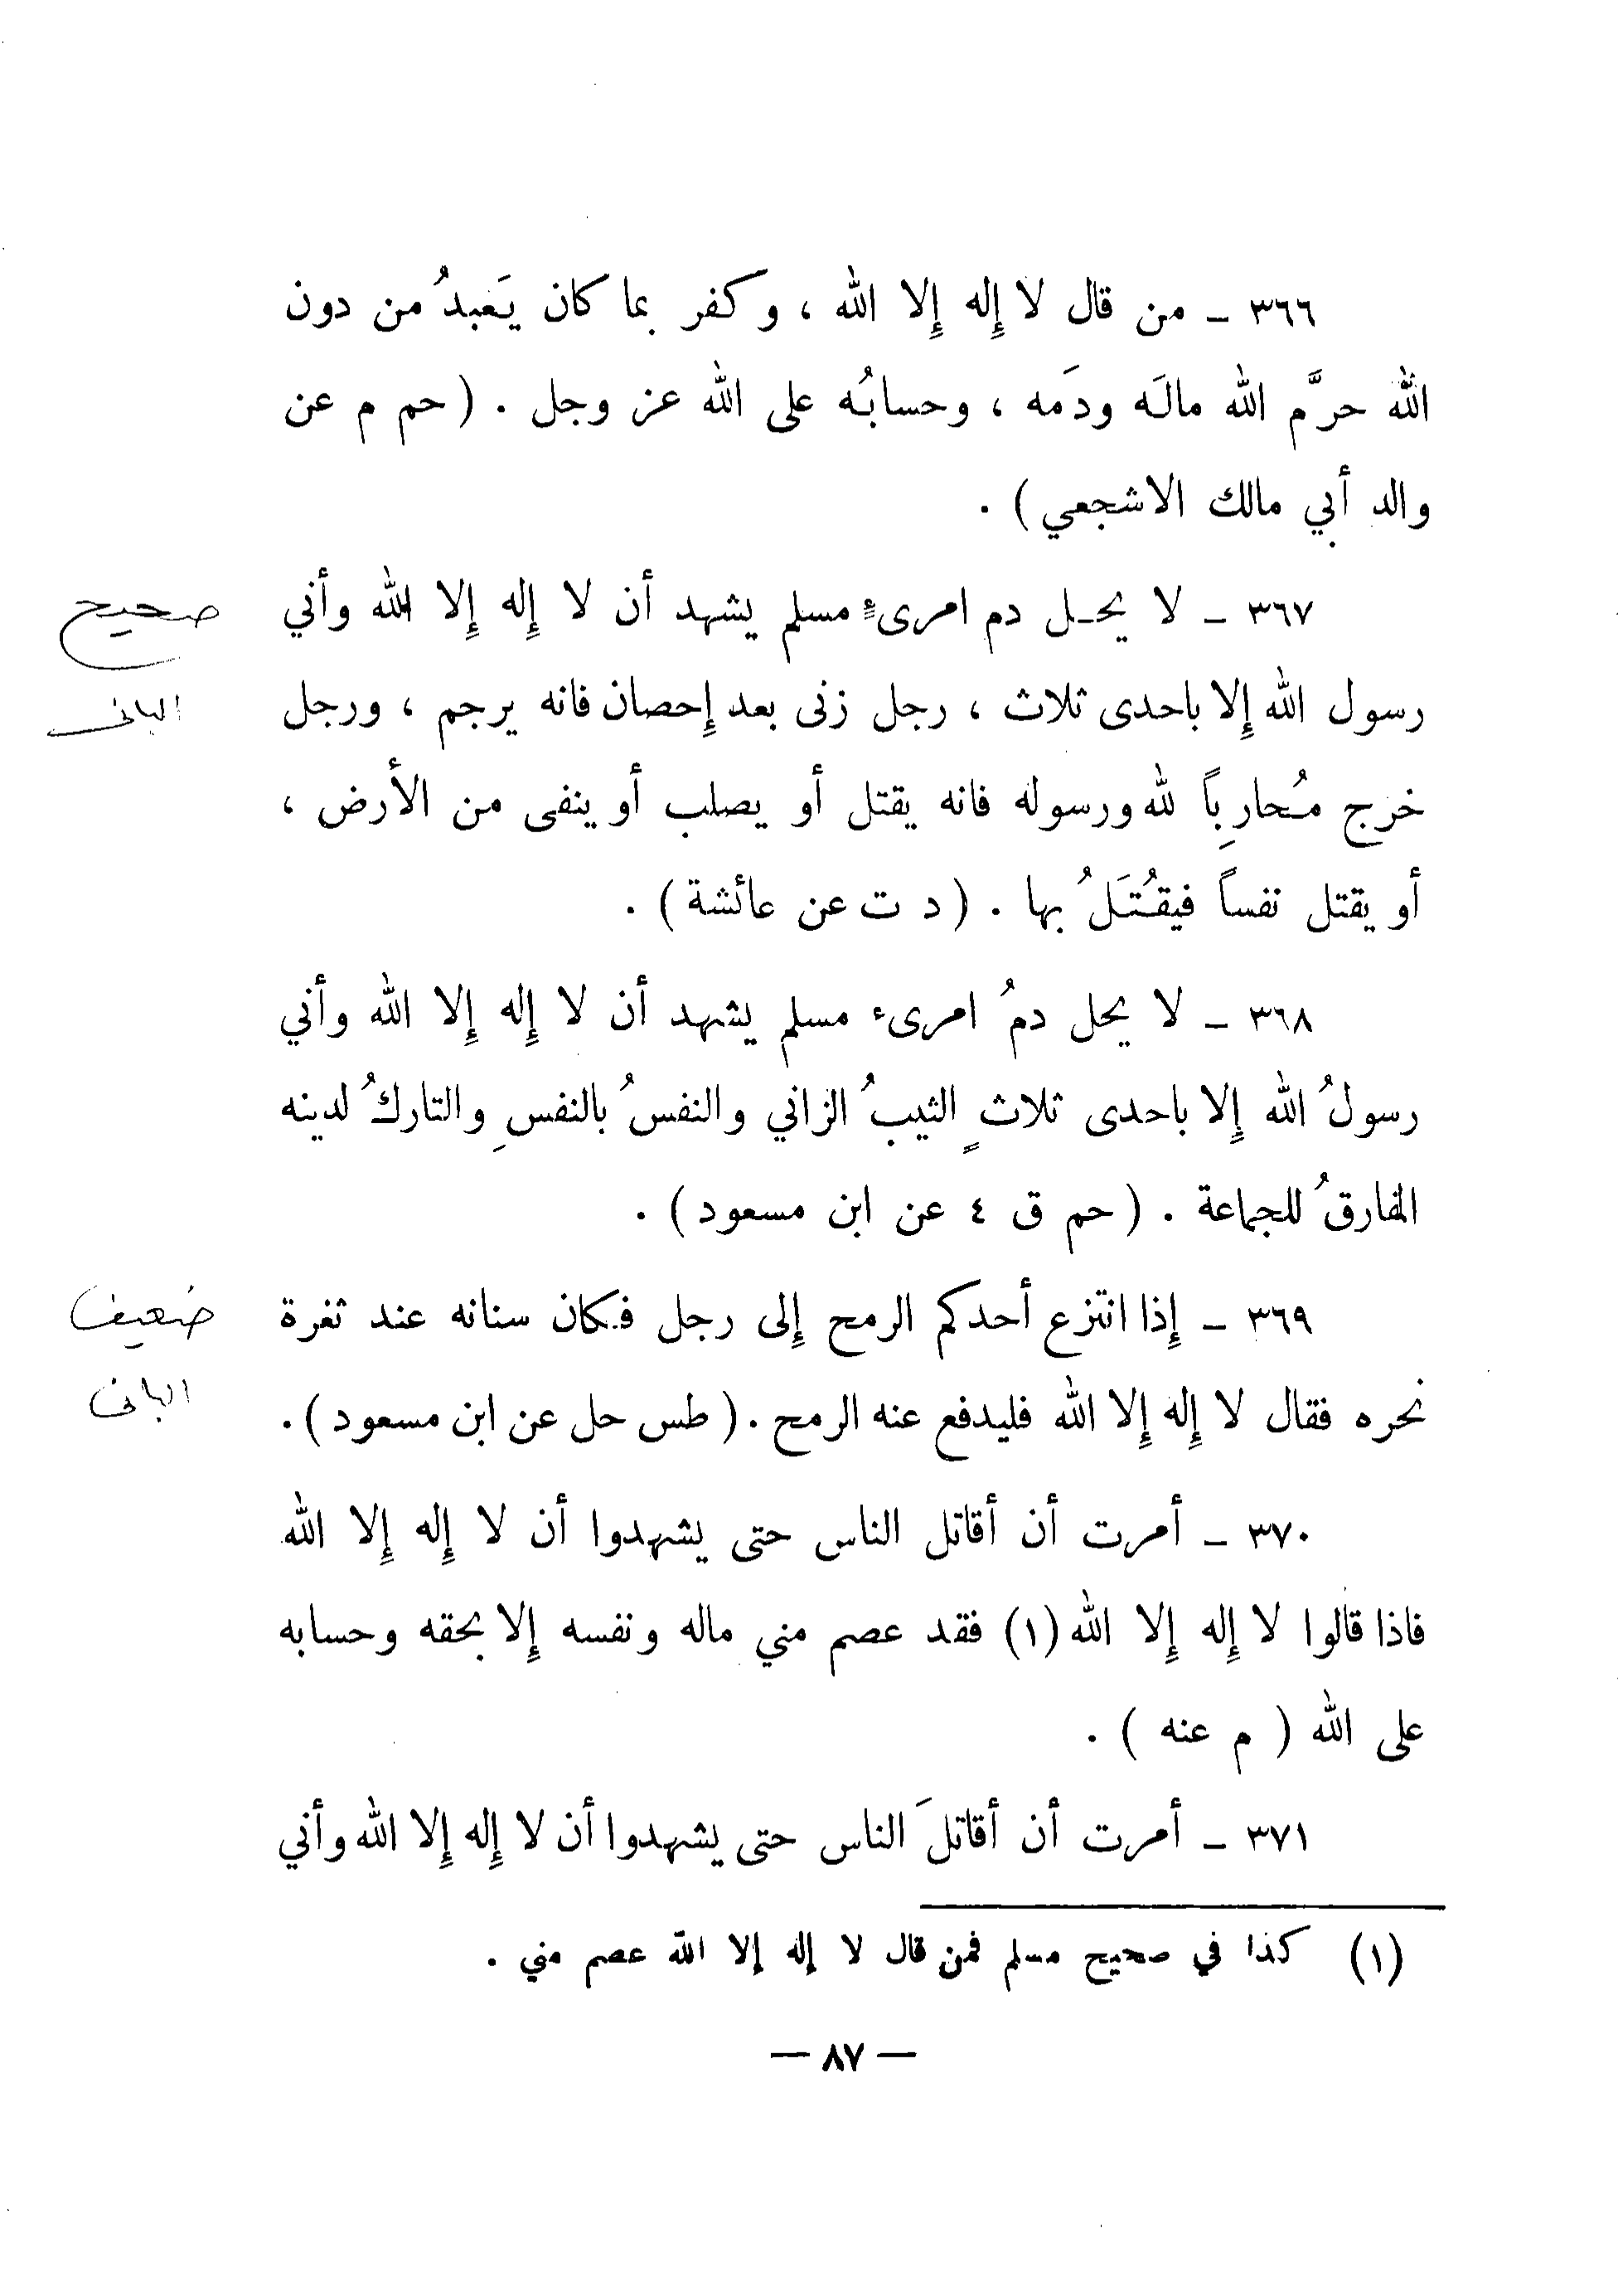 ٣٦٦ ـ من قال لا إِله إِلا الله ، وكفر بما كان يَعبدُ من دون
الله حرَّم الله مالَه ودَمه ، وحسابُه على الله عز وجل . ( حم م عن
والد أبي مالك الاشجعي ) .
٣٦٧ ـ لا يحـل دم امرىءٍ مسلم يشهد أن لا إِله إِلا الله وأني
صحيح
رسول الله إِلا باحدى ثلاث ، رجل زنى بعد إِحصان فانه يرجم ، ورجل
البانى
خرج مُحارِباً لله ورسوله فانه يقتل أو يصلب أو ينفى من الأرض ،
أو يقتل نفساً فيقُتَلُ بها . ( د ت عن عائشة ) .
٣٦٨ ـ لا يحل دمُ امرىء مسلم يشهد أن لا إِله إِلا الله وأني
رسولُ الله إِلا باحدى ثلاثٍ الثيبُ الزاني والنفسُ بالنفسِ والتاركُ لدينه
المفارقُ للجماعة . ( حم ق ٤ عن ابن مسعود ) .
٣٦٩ ـ إِذا انتزع أحدكم الرمح إِلى رجل فكان سنانه عند ثغرة
ضعيف
نحره فقال لا إِله إِلا الله فليدفع عنه الرمح . ( طس حل عن ابن مسعود ) .
البانى
٣٧٠ ـ أمرت أن أقاتل الناس حتى يشهدوا أن لا إِله إِلا الله
فاذا قالوا لا إِله إِلا الله (١) فقد عصم مني ماله ونفسه إِلا بحقه وحسابه
على الله ( م عنه ) .
٣٧١ ـ أمرت أن أقاتلَ الناس حتى يشهدوا أن لا إِله إِلا الله وأني
(١) كذا في صحيح مسلم فمن قال لا إله إلا الله عصم مني .
— ٨٧ —